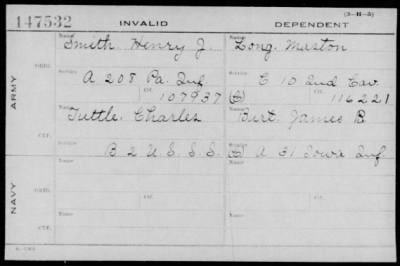 147532 INVALID DEPENDENT (3-H-5)
Smith Henry J. Long. Maston
ARMY ORIG.
A 208 Pa. Inf. C 10 Ind Cav.
107937 116221
Tuttle. Charles Burt. James R
CTF.
B 2 U.S.S.S. A 31 Iowa Inf.
NAVY ORIG.
CTF.